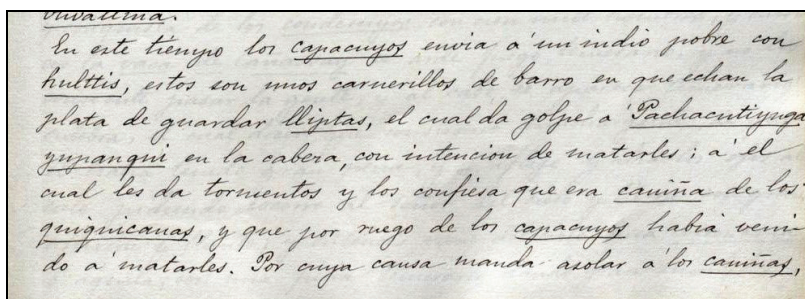 En este tiempo los capacuyos envia á un indio pobre con
hulttis, estos son unos carnerillos de barro en que echan la
plata de guardar lliptas, el cual da golpe a Pachacutiynga
yupanqui en la cabeza, con intencion de matarles; á el
cual les da tormentos y los confiesa que era caviña de los
quiquicanas, y que por ruego de los capacuyos habia veni-
do á matarles. Por cuya causa manda asolar á los caviñas,